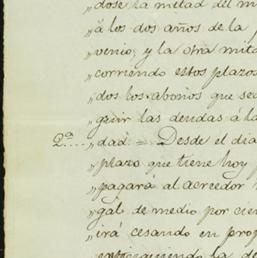 „dose la mitad del m
„á los dos años de la
„venio, y la otra mita
„corriendo estos plazos
„dos los abonos que se
„guir las deudas á la
2ª.... „dad.= Desde el dia
„plazo que tiene hoy
„pagará al acreedor
„gal de medio por cien
„irá cesando en prop